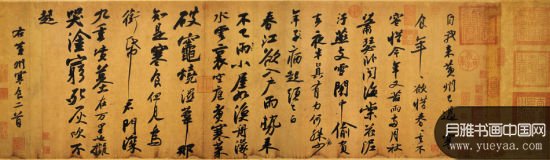 自我來黃州已過三寒
食年年欲惜春春去不
容惜今年又苦雨兩月秋
蕭瑟卧聞海棠花泥
汙燕支雪闇中偷負
去夜半真有力何殊少
年子病起頭已白
春江欲入戶雨勢來
不已雨小屋如漁舟濛濛
水雲裏空庖煮寒菜
破竈燒濕葦那
知是寒食但見烏
銜帋君門深
九重墳墓在萬里也擬
哭塗窮死灰吹不
起
右黃州寒食二首
月雅书画中国网
www.yueyaa.com